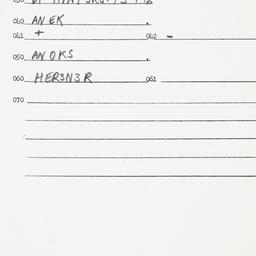 040 AN EK .
041 + 042 -
050 AN OKS .
060 HER3N3R 061
070